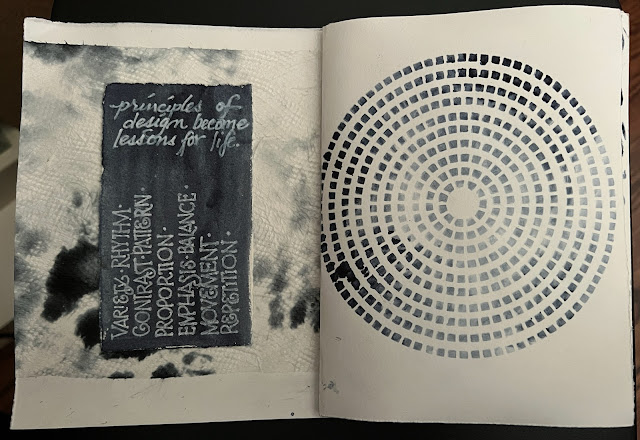 principles of
design become
lessons for life.
VARIETY·RHYTHM·
CONTRAST·PATTERN·
PROPORTION·
EMPHASIS·BALANCE·
MOVEMENT·
REPETITION·